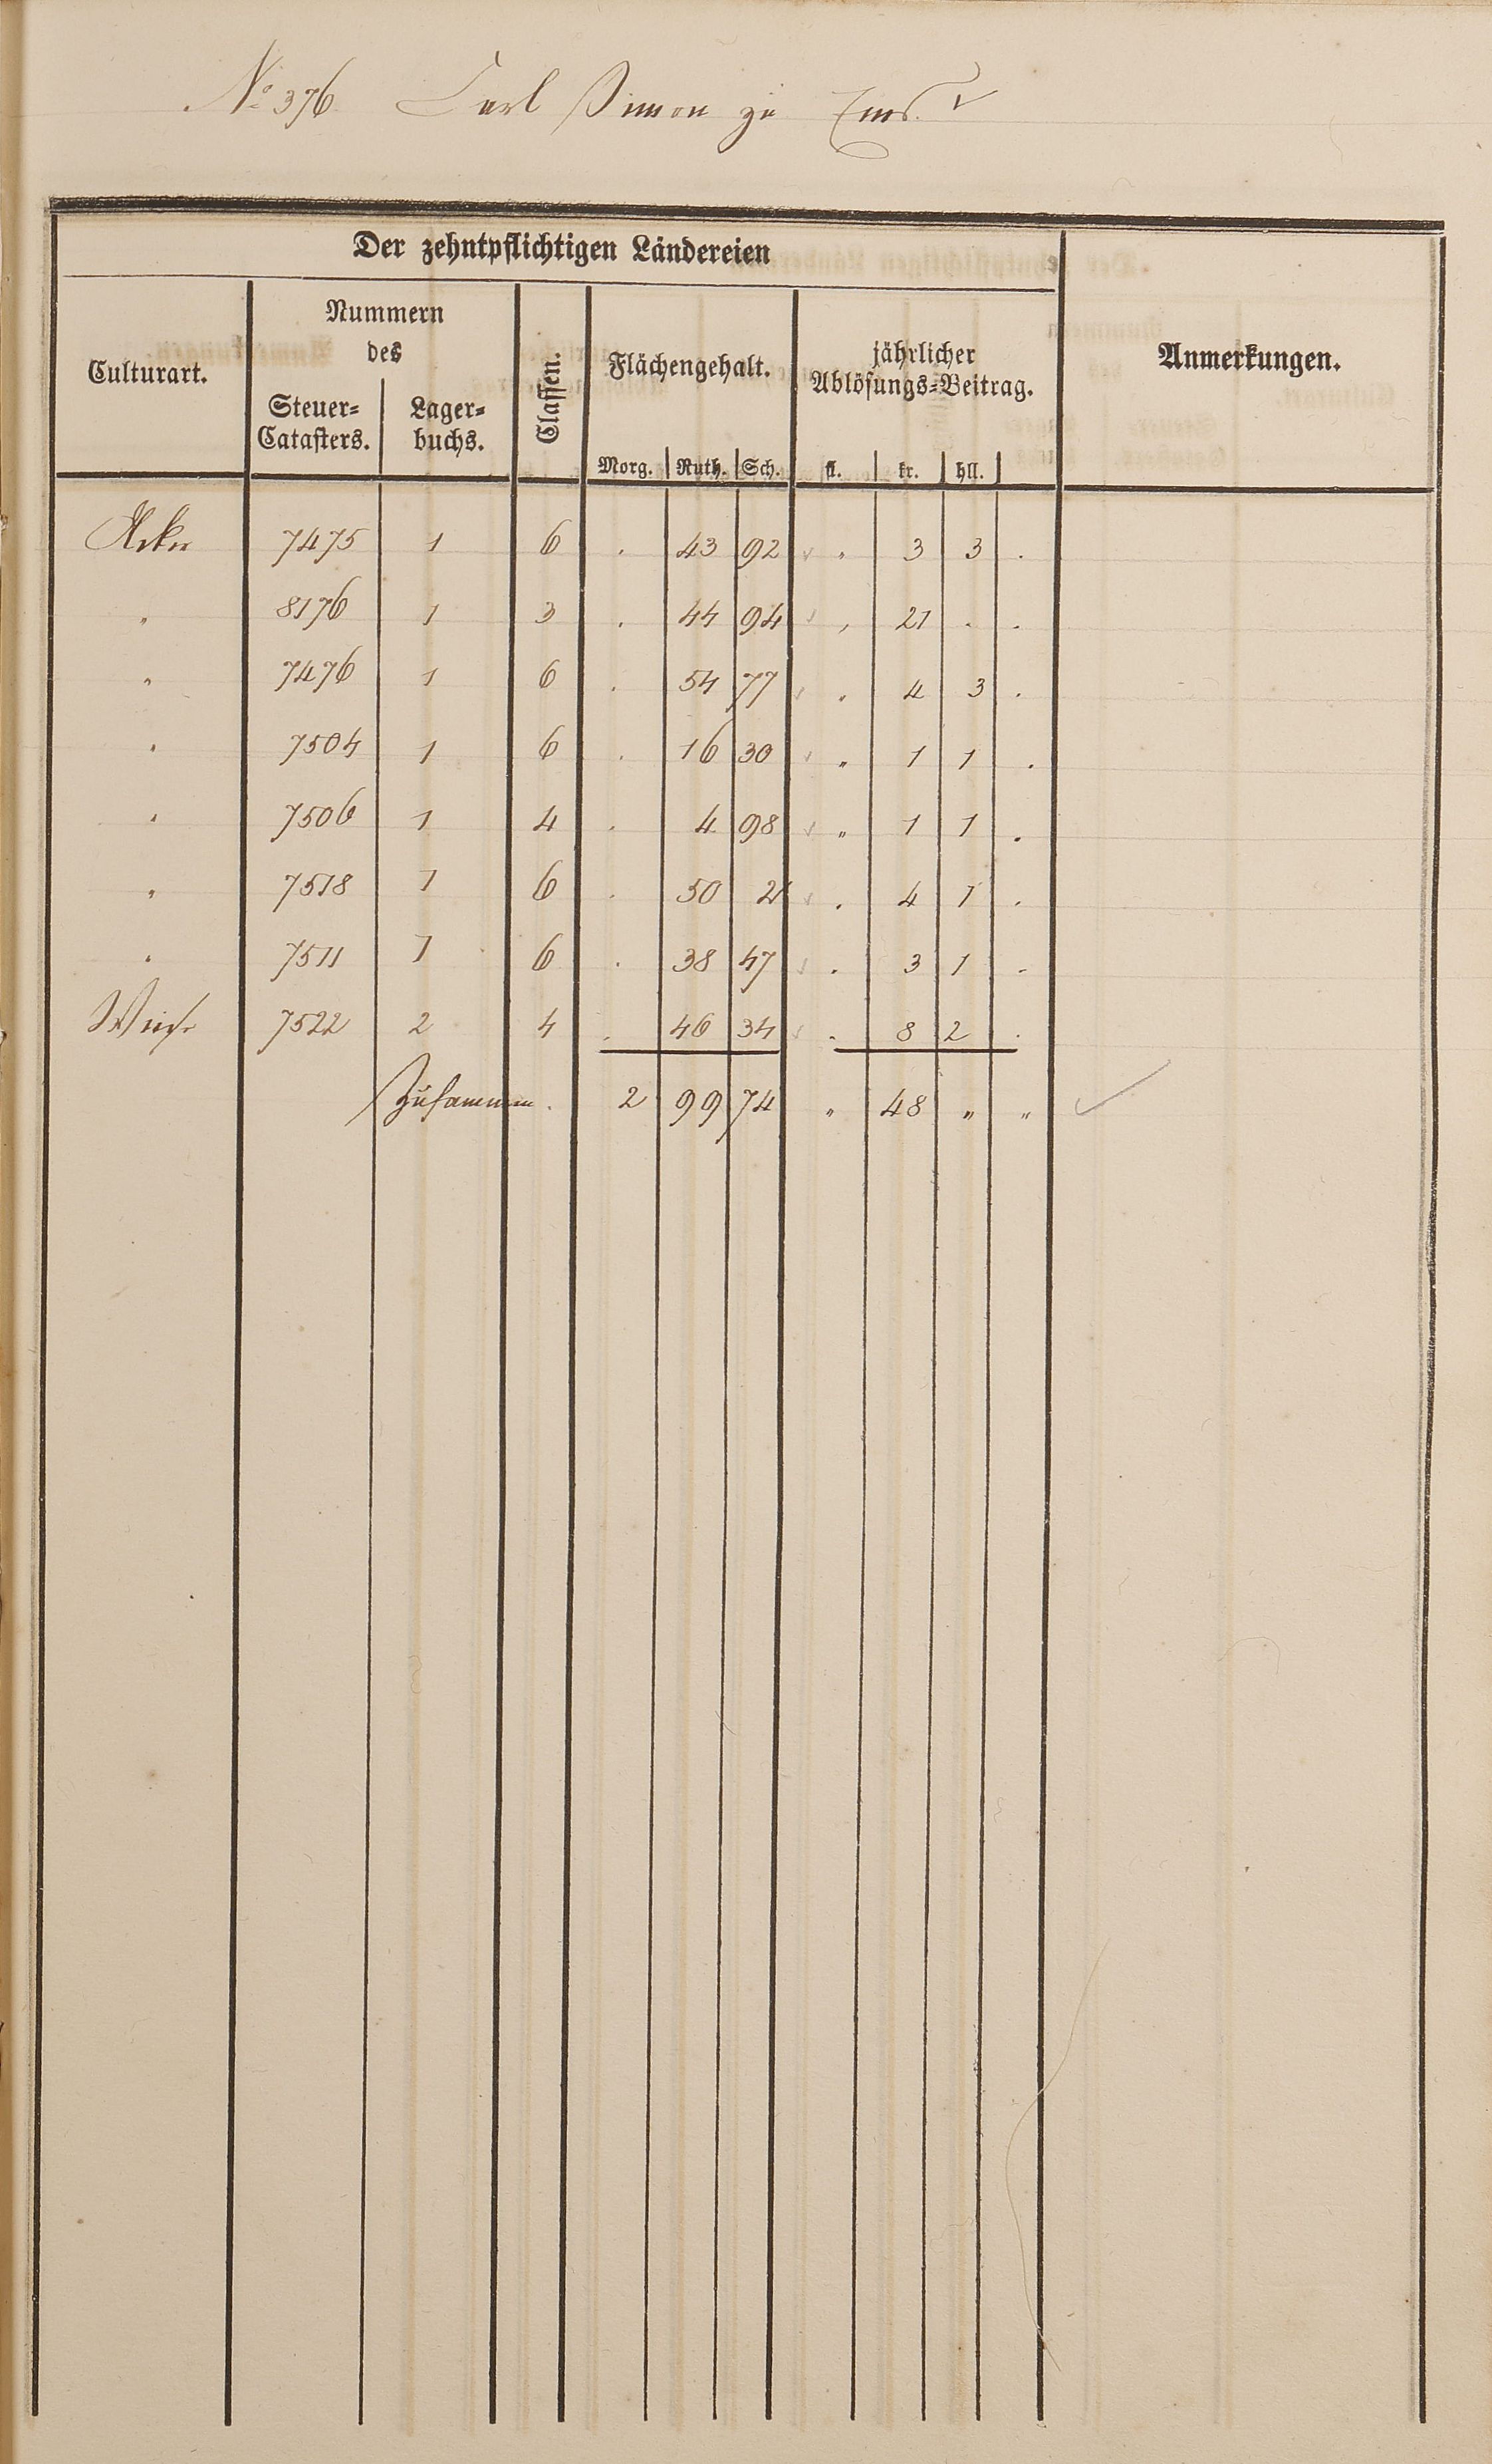 No 376. Carl Simon zu Ems.
Der zehntpflichtigen Ländereien
Culturart. Nummern des Classen. Flächengehalt. jährlicher Ablösungs=Beitrag. Anmerkungen.
Steuer=Catasters. Lager=buchs. Morg. Ruth. Sch. fl. kr. hll.
Acker 7475 1 6 . 43 92 „ 3 3 .
„ 8176 1 3 . 44 94 „ 21 . .
„ 7476 1 6 . 54 77 „ 4 3 .
„ 7504 1 6 . 16 30 „ 1 1 .
„ 7506 1 4 . 4 98 „ 1 1 .
„ 7518 1 6 . 50 2 . 4 1 .
„ 7511 1 6 . 38 47 . 3 1 .
Wiese 7522 2 4 . 46 34 . 8 2 .
Zusammen. 2 99 74 „ 48 „ „